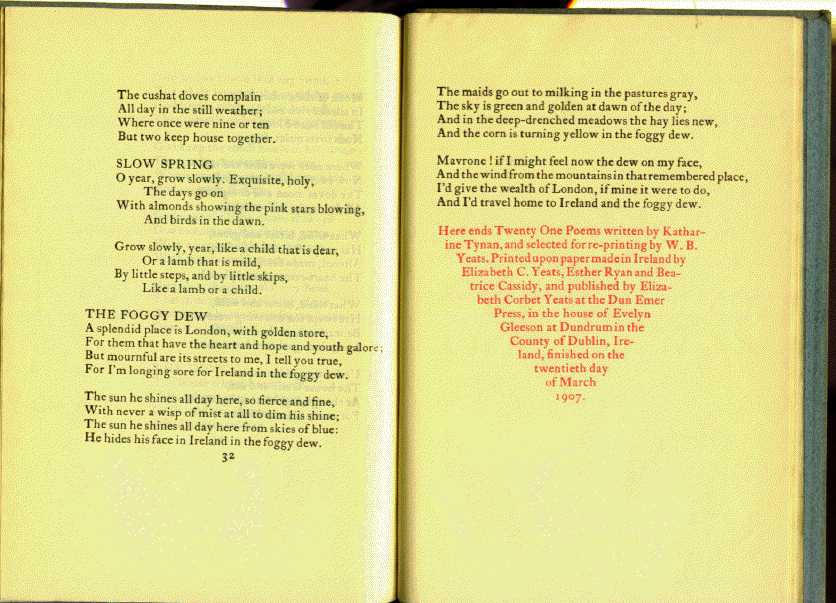 The cushat doves complain
All day in the still weather;
Where once were nine or ten
But two keep house together.
SLOW SPRING
O year, grow slowly. Exquisite, holy,
The days go on
With almonds showing the pink stars blowing,
And birds in the dawn.
Grow slowly, year, like a child that is dear,
Or a lamb that is mild,
By little steps, and by little skips,
Like a lamb or a child.
THE FOGGY DEW
A splendid place is London, with golden store,
For them that have the heart and hope and youth galore;
But mournful are its streets to me, I tell you true,
For I'm longing sore for Ireland in the foggy dew.
The sun he shines all day here, so fierce and fine,
With never a wisp of mist at all to dim his shine;
The sun he shines all day here from skies of blue:
He hides his face in Ireland in the foggy dew.
32
The maids go out to milking in the pastures gray,
The sky is green and golden at dawn of the day;
And in the deep-drenched meadows the hay lies new,
And the corn is turning yellow in the foggy dew.
Mavrone! if I might feel now the dew on my face,
And the wind from the mountains in that remembered place,
I'd give the wealth of London, if mine it were to do,
And I'd travel home to Ireland and the foggy dew.
Here ends Twenty One Poems written by Kathar-
ine Tynan, and selected for re-printing by W. B.
Yeats. Printed upon paper made in Ireland by
Elizabeth C. Yeats, Esther Ryan and Bea-
trice Cassidy, and published by Eliza-
beth Corbet Yeats at the Dun Emer
Press, in the house of Evelyn
Gleeson at Dundrum in the
County of Dublin, Ire-
land, finished on the
twentieth day
of March
1907.